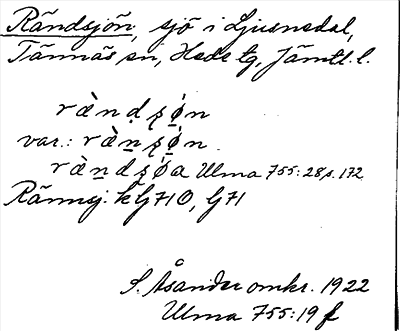 Rändsjön, sjö i Ljusnedal,
Tännäs sn, Hede tg, Jämtl. l.
ræ̀nḍʂǿn
var.: ræ̀ṇʂǿn
ræ̀ṇdʂǿa Ulma 755:28 s. 172
Rännsj: kG710, G71
S. Åsander omkr. 1922
Ulma 755:19 f